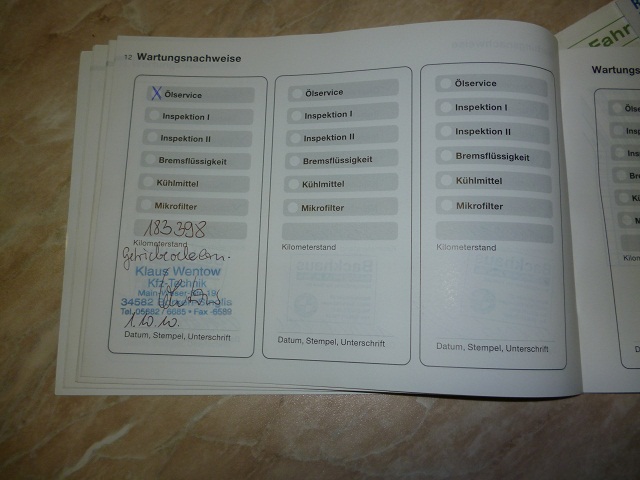 12 Wartungsnachweise
X Ölservice
Inspektion I
Inspektion II
Bremsflüssigkeit
Kühlmittel
Mikrofilter
183398
Kilometerstand
Klaus Wentow
Kfz-Technik
34582
Tel. 05682 / 6685 • Fax -6589
1.10.10.
Datum, Stempel, Unterschrift
Ölservice
Inspektion I
Inspektion II
Bremsflüssigkeit
Kühlmittel
Mikrofilter
Kilometerstand
Datum, Stempel, Unterschrift
Ölservice
Inspektion I
Inspektion II
Bremsflüssigkeit
Kühlmittel
Mikrofilter
Kilometerstand
Datum, Stempel, Unterschrift
Fahr
Wartungs